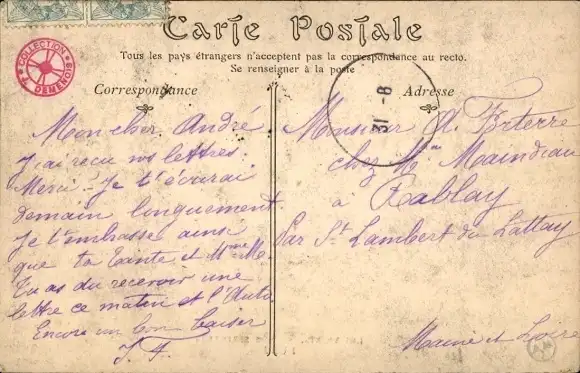 COLLECTION
A. DEMENOIS
Carte Postale
Tous les pays étrangers n'acceptent pas la correspondance au recto.
Se renseigner à la poste
Correspondance
Adresse
31 - 8
Mon cher André
J'ai reçu vos lettres.
Merci. Je t'écrirai
demain longuement.
Je t'embrasse ainsi
que ta tante et Mme M.
Tu as du recevoir une
lettre ce matin et l'Auto
Encore un bon baiser
Monsieur A.
chez Mme Maindeau
à Rablay
Par St Lambert du Lattay
Maine et Loire